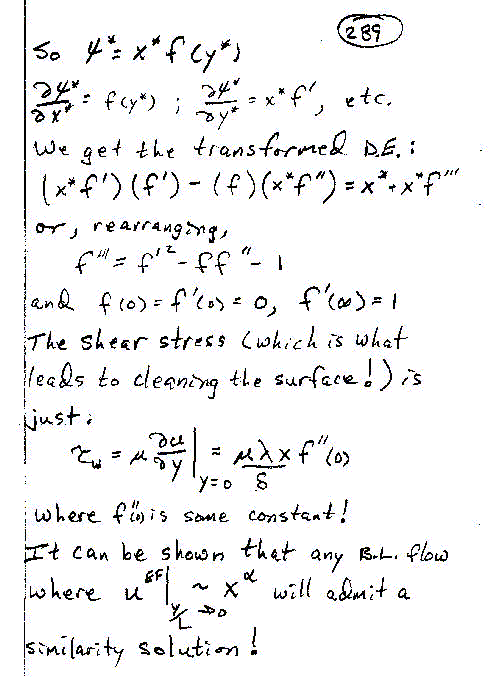 289
So ψ* = x* f(y*)
∂ψ*/∂x* = f(y*) ; ∂ψ*/∂y* = x* f', etc.
We get the transformed D.E.:
(x* f')(f') - (f)(x* f'') = x* + x* f'''
or, rearranging,
f''' = f'² - f f'' - 1
and f(0) = f'(0) = 0, f'(∞) = 1
The shear stress (which is what
leads to cleaning the surface!) is
just:
τ_w = μ ∂u/∂y |_{y=0} = μλx/δ f''(0)
where f''(0) is some constant!
It can be shown that any B.L. flow
where u^{EF} |_{y/L → 0} ~ x^α will admit a
similarity solution!